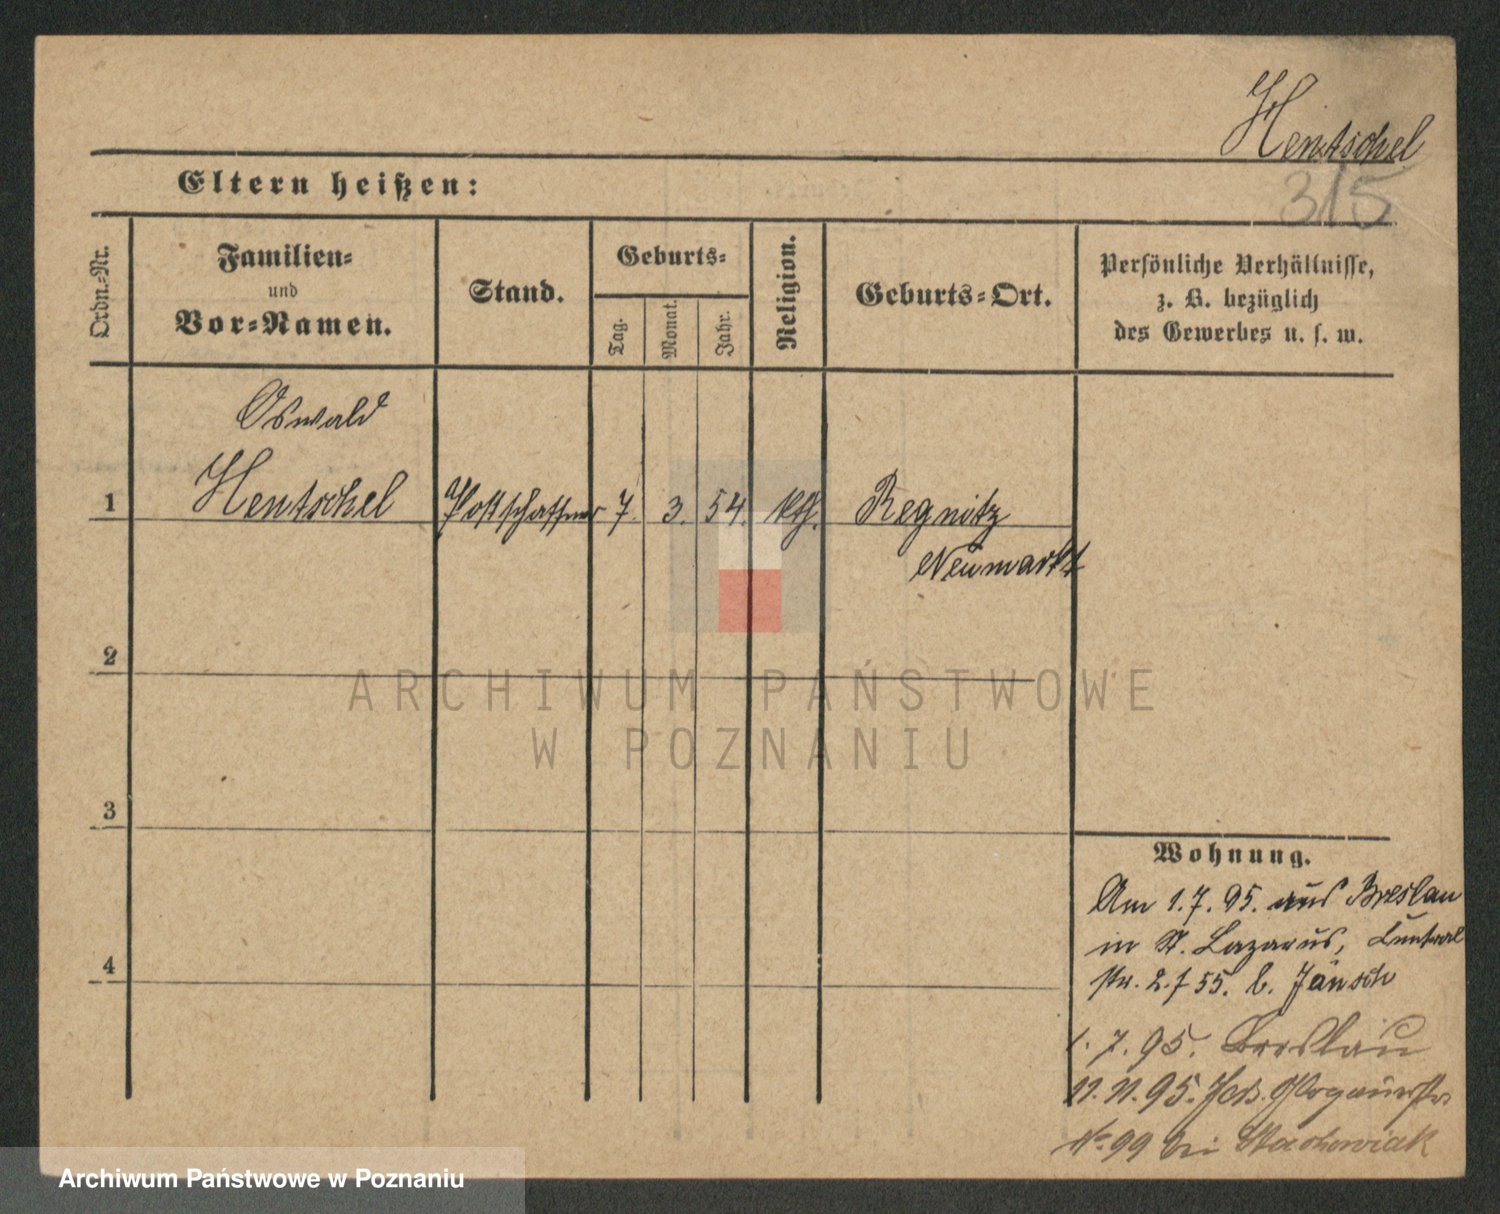 Hentschel
315
Eltern heißen:
Ordn.-Nr.
Familien-
und
Vor-Namen.
Stand.
Geburts-
Tag.
Monat.
Jahr.
Religion.
Geburts-Ort.
Persönliche Verhältnisse,
z. B. bezüglich
des Gewerbes u. s. w.
Oswald
1 Hentschel Postschaffner 7. 3. 54. kth. Regnitz
Neumarkt
2
ARCHIWUM PAŃSTWOWE
W POZNANIU
3
4
Wohnung.
Am 1.7.95. aus Breslau
in St. Lazarus,
str. b. Jänsch
1.7.95. Breslau
11.11.95. Jers. Glogauerstr
No 99 bei Stachowiak
Archiwum Państwowe w Poznaniu